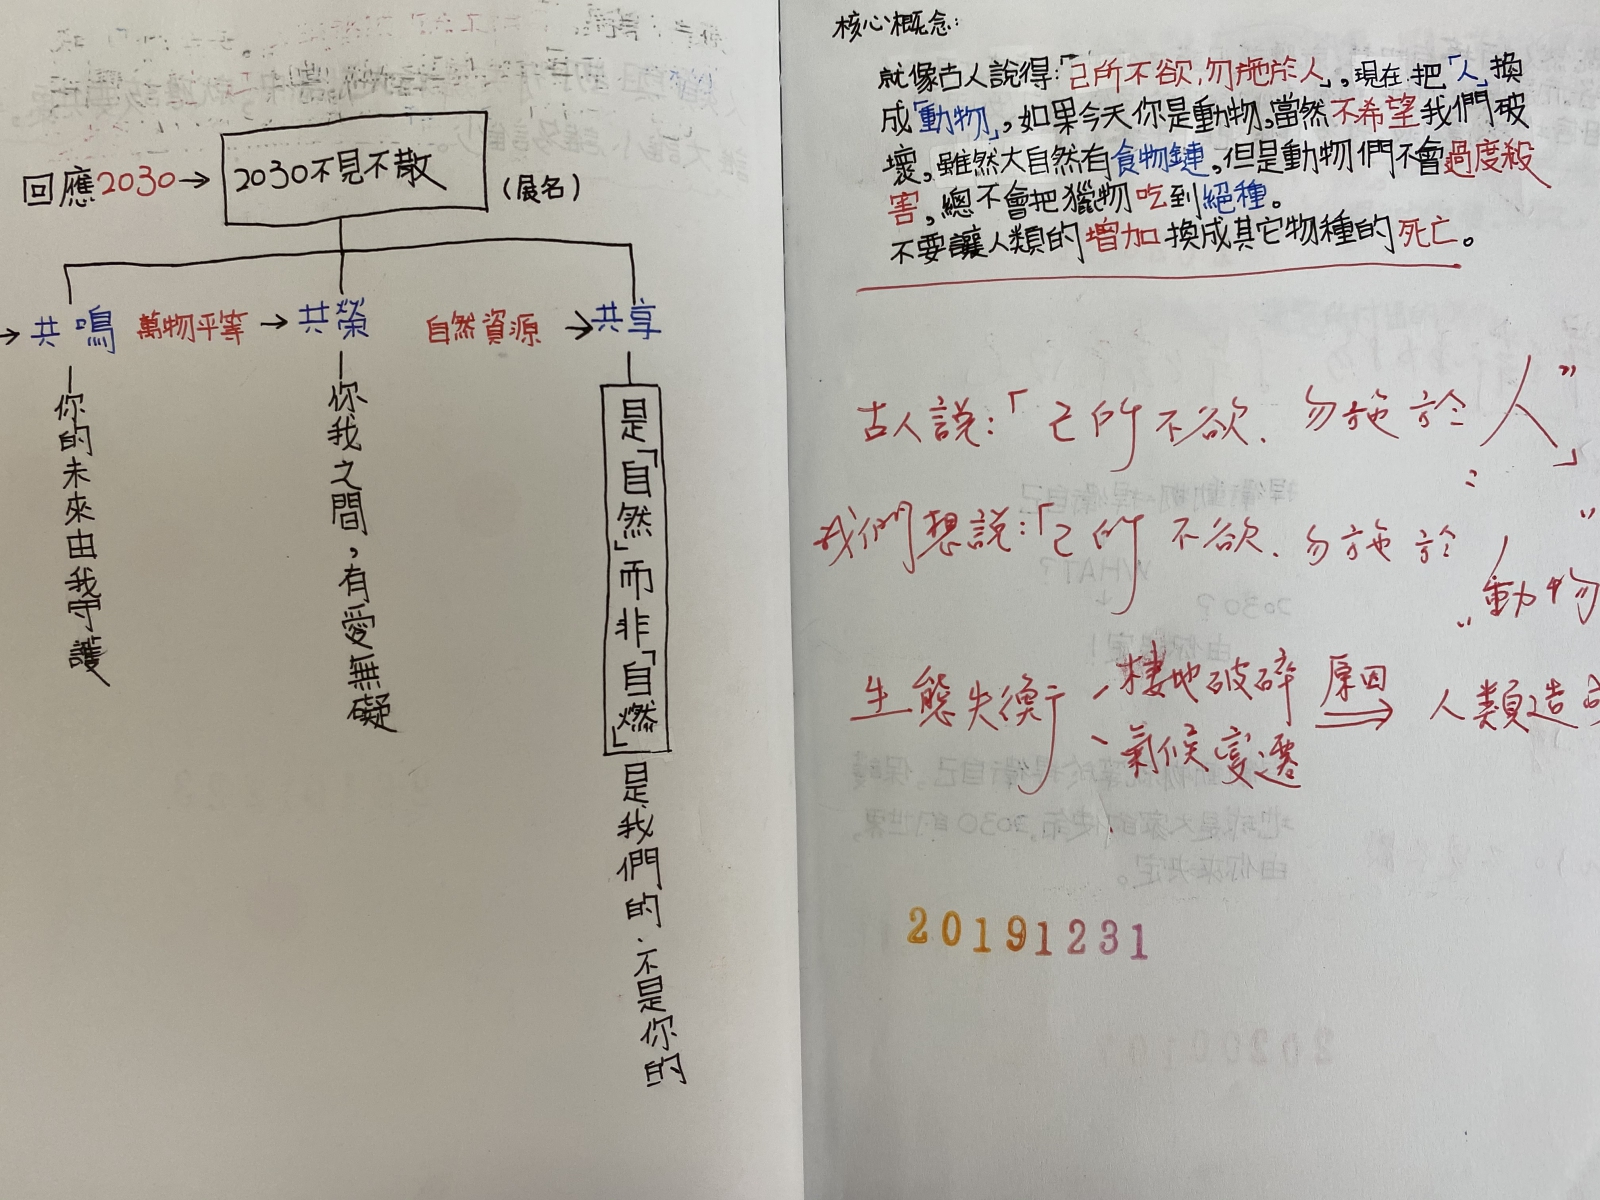 回應2030→
2030不見不散
(展名)
→共鳴
萬物平等→共榮
自然資源→共享
你的未來由我守護
你我之間,有愛無礙
是「自然」而非「自燃」是我們的、不是你的
核心概念:
就像古人說得:「己所不欲,勿施於人」,現在把「人」換
成「動物」,如果今天你是動物,當然不希望我們破
壞,雖然大自然有食物鏈,但是動物們不會過度殺
害,總不會把獵物吃到絕種。
不要讓人類的增加換成其它物種的死亡。
古人說:「己所不欲、勿施於"人"」
我們想說:「己所不欲、勿施於"動物
生態失衡
、棲地破碎
、氣候變遷
原因⇒人類造成
20191231